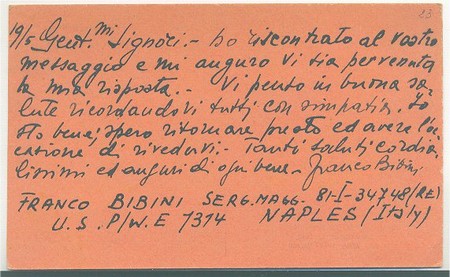 23
19/5 Gent.mi Signori.- ho riscontrato al vostro
messaggio e mi auguro vi sia pervenuta
la mia risposta.- Vi penso in buona sa-
lute ricordandovi tutti con simpatia. Io
sto bene, spero ritornare presto ed avere l'oc-
casione di rivedervi.- Tanti saluti cordia-
lissimi ed auguri di ogni bene - Franco Bibini
FRANCO BIBINI SERG. MAGG. 81-I-34748 (RE)
U.S. P/W.E 7374 NAPLES (Italy)